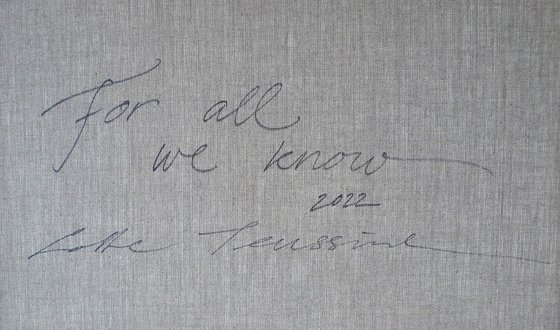 For all
we know
2022
Lotte Teussink